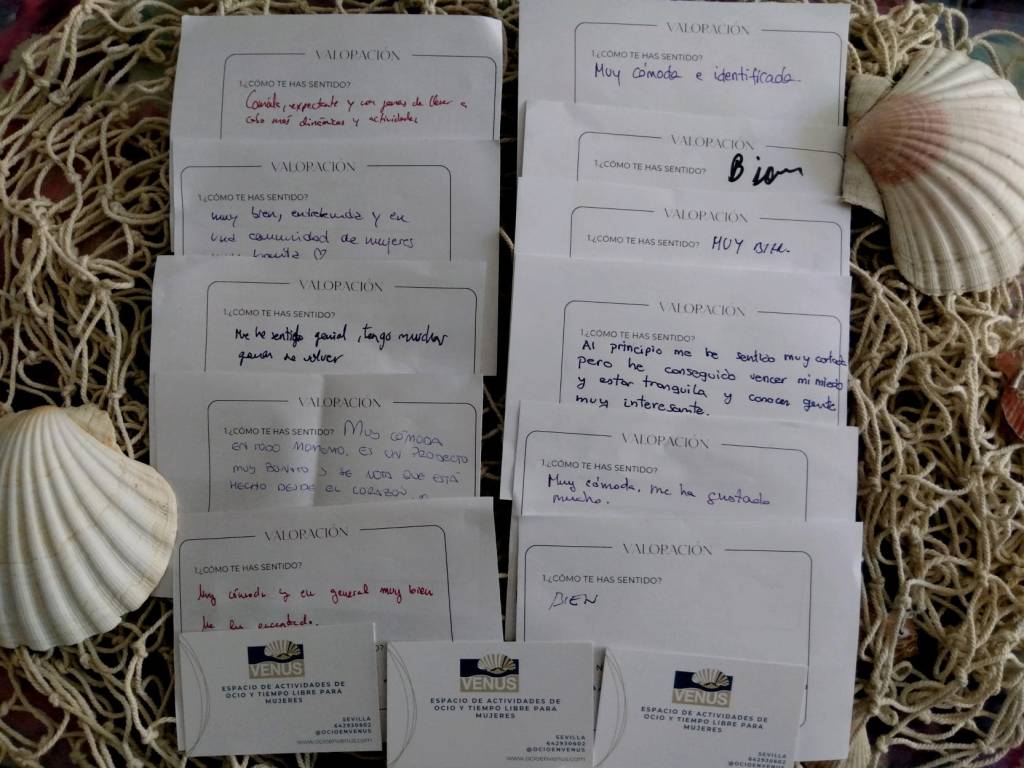 VALORACIÓN
1.¿CÓMO TE HAS SENTIDO?
Cómoda, expectante y con ganas de llevar a
cabo más dinámicas y actividades
VALORACIÓN
1.¿CÓMO TE HAS SENTIDO?
muy bien, entretenida y en
una comunidad de mujeres
muy bonita ♡
VALORACIÓN
1.¿CÓMO TE HAS SENTIDO?
Me he sentido genial, tengo muchas
ganas de volver
VALORACIÓN
1.¿CÓMO TE HAS SENTIDO? MUY CÓMODA
EN TODO MOMENTO. ES UN PROYECTO
MUY BONITO Y SE NOTA QUE ESTÁ
HECHO DESDE EL CORAZÓN.
VALORACIÓN
1.¿CÓMO TE HAS SENTIDO?
Muy cómoda y en general muy bien
Me ha encantado.
VALORACIÓN
1.¿CÓMO TE HAS SENTIDO?
Muy cómoda e identificada
VALORACIÓN
1.¿CÓMO TE HAS SENTIDO? Bien
VALORACIÓN
1.¿CÓMO TE HAS SENTIDO? MUY BIEN.
VALORACIÓN
1.¿CÓMO TE HAS SENTIDO?
Al principio me he sentido muy cortada
pero he conseguido vencer mi miedo
y estar tranquila y conocer gente
muy interesante.
VALORACIÓN
1.¿CÓMO TE HAS SENTIDO?
Muy cómoda, me ha gustado
mucho.
VALORACIÓN
1.¿CÓMO TE HAS SENTIDO?
BIEN
VENUS
ESPACIO DE ACTIVIDADES DE
OCIO Y TIEMPO LIBRE PARA
MUJERES
SEVILLA
642930602
@OCIOENVENUS
www.ocioenvenus.com
VENUS
ESPACIO DE ACTIVIDADES DE
OCIO Y TIEMPO LIBRE PARA
MUJERES
SEVILLA
642930602
@OCIOENVENUS
www.ocioenvenus.com
VENUS
ESPACIO DE ACTIVIDADES DE
OCIO Y TIEMPO LIBRE PARA
MUJERES
SEVILLA
642930602
@OCIOENVENUS